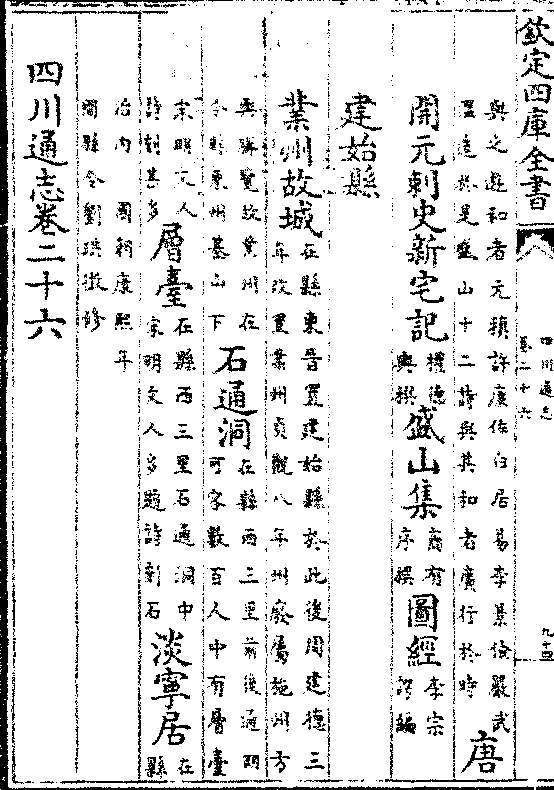 欽定四庫全書
四川通志
卷二十六
九十四
與之遊和者元稹許康佐白居易李景儉嚴武
溫造於是盛山十二詩與其和者廣行於時
唐
開元刺史新宅記
權德
輿撰
盛山集
商有
序撰
圖經
李宗
諤編
建始縣
業州故城
在縣東晉置建始縣於此後周建德三
年改置業州貞觀八年州廢屬施州方
輿勝覽故業州在
今縣東州基山下
石通洞
在縣西三里前後通明
可容數百人中有層臺
宋明文人
詩刻甚多
層臺
在縣西三里石通洞中
宋明文人多題詩刻石
淡寧居
在
縣
治內 國朝康熙 年
間縣令劉珙徴修
四川通志卷二十六